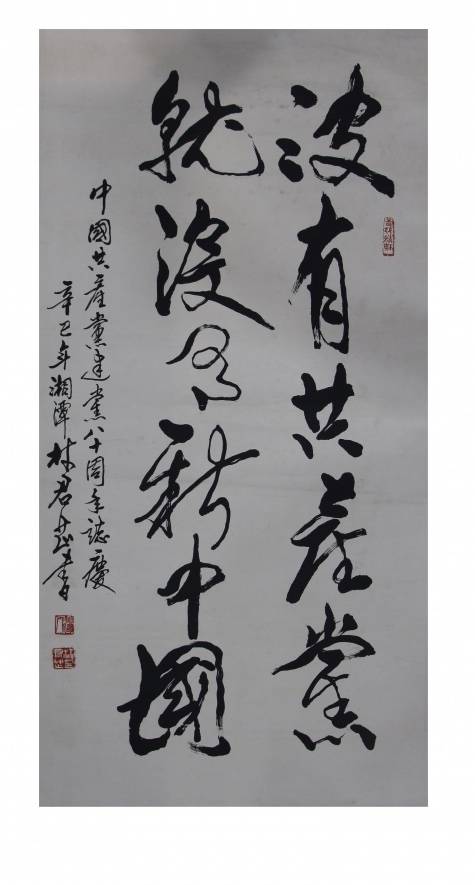 没有共產黨
就没有新中國
中國共產黨建黨八十周年誌慶
辛巳年湘潭林君書